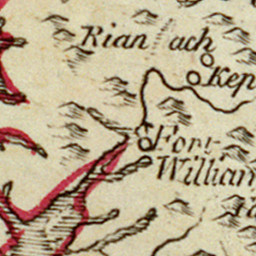 Rian lach
Kep
Fort
William